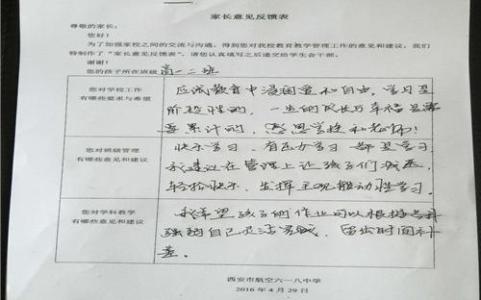 家长意见反馈表
尊敬的家长：
您好！
为了加强家校之间的交流与沟通，得到您对我校教育教学管理工作的意见和建议，我们
特制作了“家长意见反馈表”，请您认真填写之后递交给学生会干部。
谢谢！
您的孩子所在班级 高一二班
您对学校工作
有哪些要求与希望
应试教育中 和自由，学习是
阶段性的，一生的成长与幸福是需
要累计的，感恩学校和老师！
您对班级管理
有哪些意见和建议
快乐学习、有压力学习 都是学习
我建议在管理上让孩子们 
轻松快乐，发挥主观能动性学习。
您对学科教学
有哪些意见和建议
我希望孩子们作业可以根据
强弱自己 ，留出时间补
差。
西安市航空六一八中学
2016 年 4 月 29 日